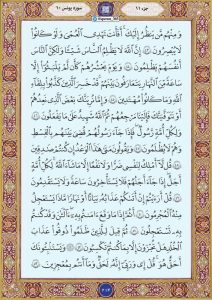 جزء ۱۱
سوره یونس ۱۰
وَمِنْهُم مَّن يَنظُرُ إِلَيْكَ أَفَأَنتَ تَهْدِي الْعُمْيَ وَلَوْ كَانُوا
لَا يُبْصِرُونَ ﴿٤٣﴾ إِنَّ اللَّهَ لَا يَظْلِمُ النَّاسَ شَيْئًا وَلَٰكِنَّ النَّاسَ
أَنفُسَهُمْ يَظْلِمُونَ ﴿٤٤﴾ وَيَوْمَ يَحْشُرُهُمْ كَأَن لَّمْ يَلْبَثُوا إِلَّا
سَاعَةً مِّنَ النَّهَارِ يَتَعَارَفُونَ بَيْنَهُمْ قَدْ خَسِرَ الَّذِينَ كَذَّبُوا بِلِقَاءِ
اللَّهِ وَمَا كَانُوا مُهْتَدِينَ ﴿٤٥﴾ وَإِمَّا نُرِيَنَّكَ بَعْضَ الَّذِي نَعِدُهُمْ
أَوْ نَتَوَفَّيَنَّكَ فَإِلَيْنَا مَرْجِعُهُمْ ثُمَّ اللَّهُ شَهِيدٌ عَلَىٰ مَا يَفْعَلُونَ ﴿٤٦﴾
وَلِكُلِّ أُمَّةٍ رَّسُولٌ فَإِذَا جَاءَ رَسُولُهُمْ قُضِيَ بَيْنَهُم بِالْقِسْطِ
وَهُمْ لَا يُظْلَمُونَ ﴿٤٧﴾ وَيَقُولُونَ مَتَىٰ هَٰذَا الْوَعْدُ إِن كُنتُمْ صَادِقِينَ ﴿٤٨﴾
قُل لَّا أَمْلِكُ لِنَفْسِي ضَرًّا وَلَا نَفْعًا إِلَّا مَا شَاءَ اللَّهُ لِكُلِّ أُمَّةٍ
أَجَلٌ إِذَا جَاءَ أَجَلُهُمْ فَلَا يَسْتَأْخِرُونَ سَاعَةً وَلَا يَسْتَقْدِمُونَ
﴿٤٩﴾ قُلْ أَرَأَيْتُمْ إِنْ أَتَاكُمْ عَذَابُهُ بَيَاتًا أَوْ نَهَارًا مَّاذَا يَسْتَعْجِلُ
مِنْهُ الْمُجْرِمُونَ ﴿٥٠﴾ أَثُمَّ إِذَا مَا وَقَعَ آمَنتُم بِهِ آلْآنَ وَقَدْ كُنتُم
بِهِ تَسْتَعْجِلُونَ ﴿٥١﴾ ثُمَّ قِيلَ لِلَّذِينَ ظَلَمُوا ذُوقُوا عَذَابَ
الْخُلْدِ هَلْ تُجْزَوْنَ إِلَّا بِمَا كُنتُمْ تَكْسِبُونَ ﴿٥٢﴾ وَيَسْتَنبِئُونَكَ
أَحَقٌّ هُوَ قُلْ إِي وَرَبِّي إِنَّهُ لَحَقٌّ وَمَا أَنتُم بِمُعْجِزِينَ ﴿٥٣﴾